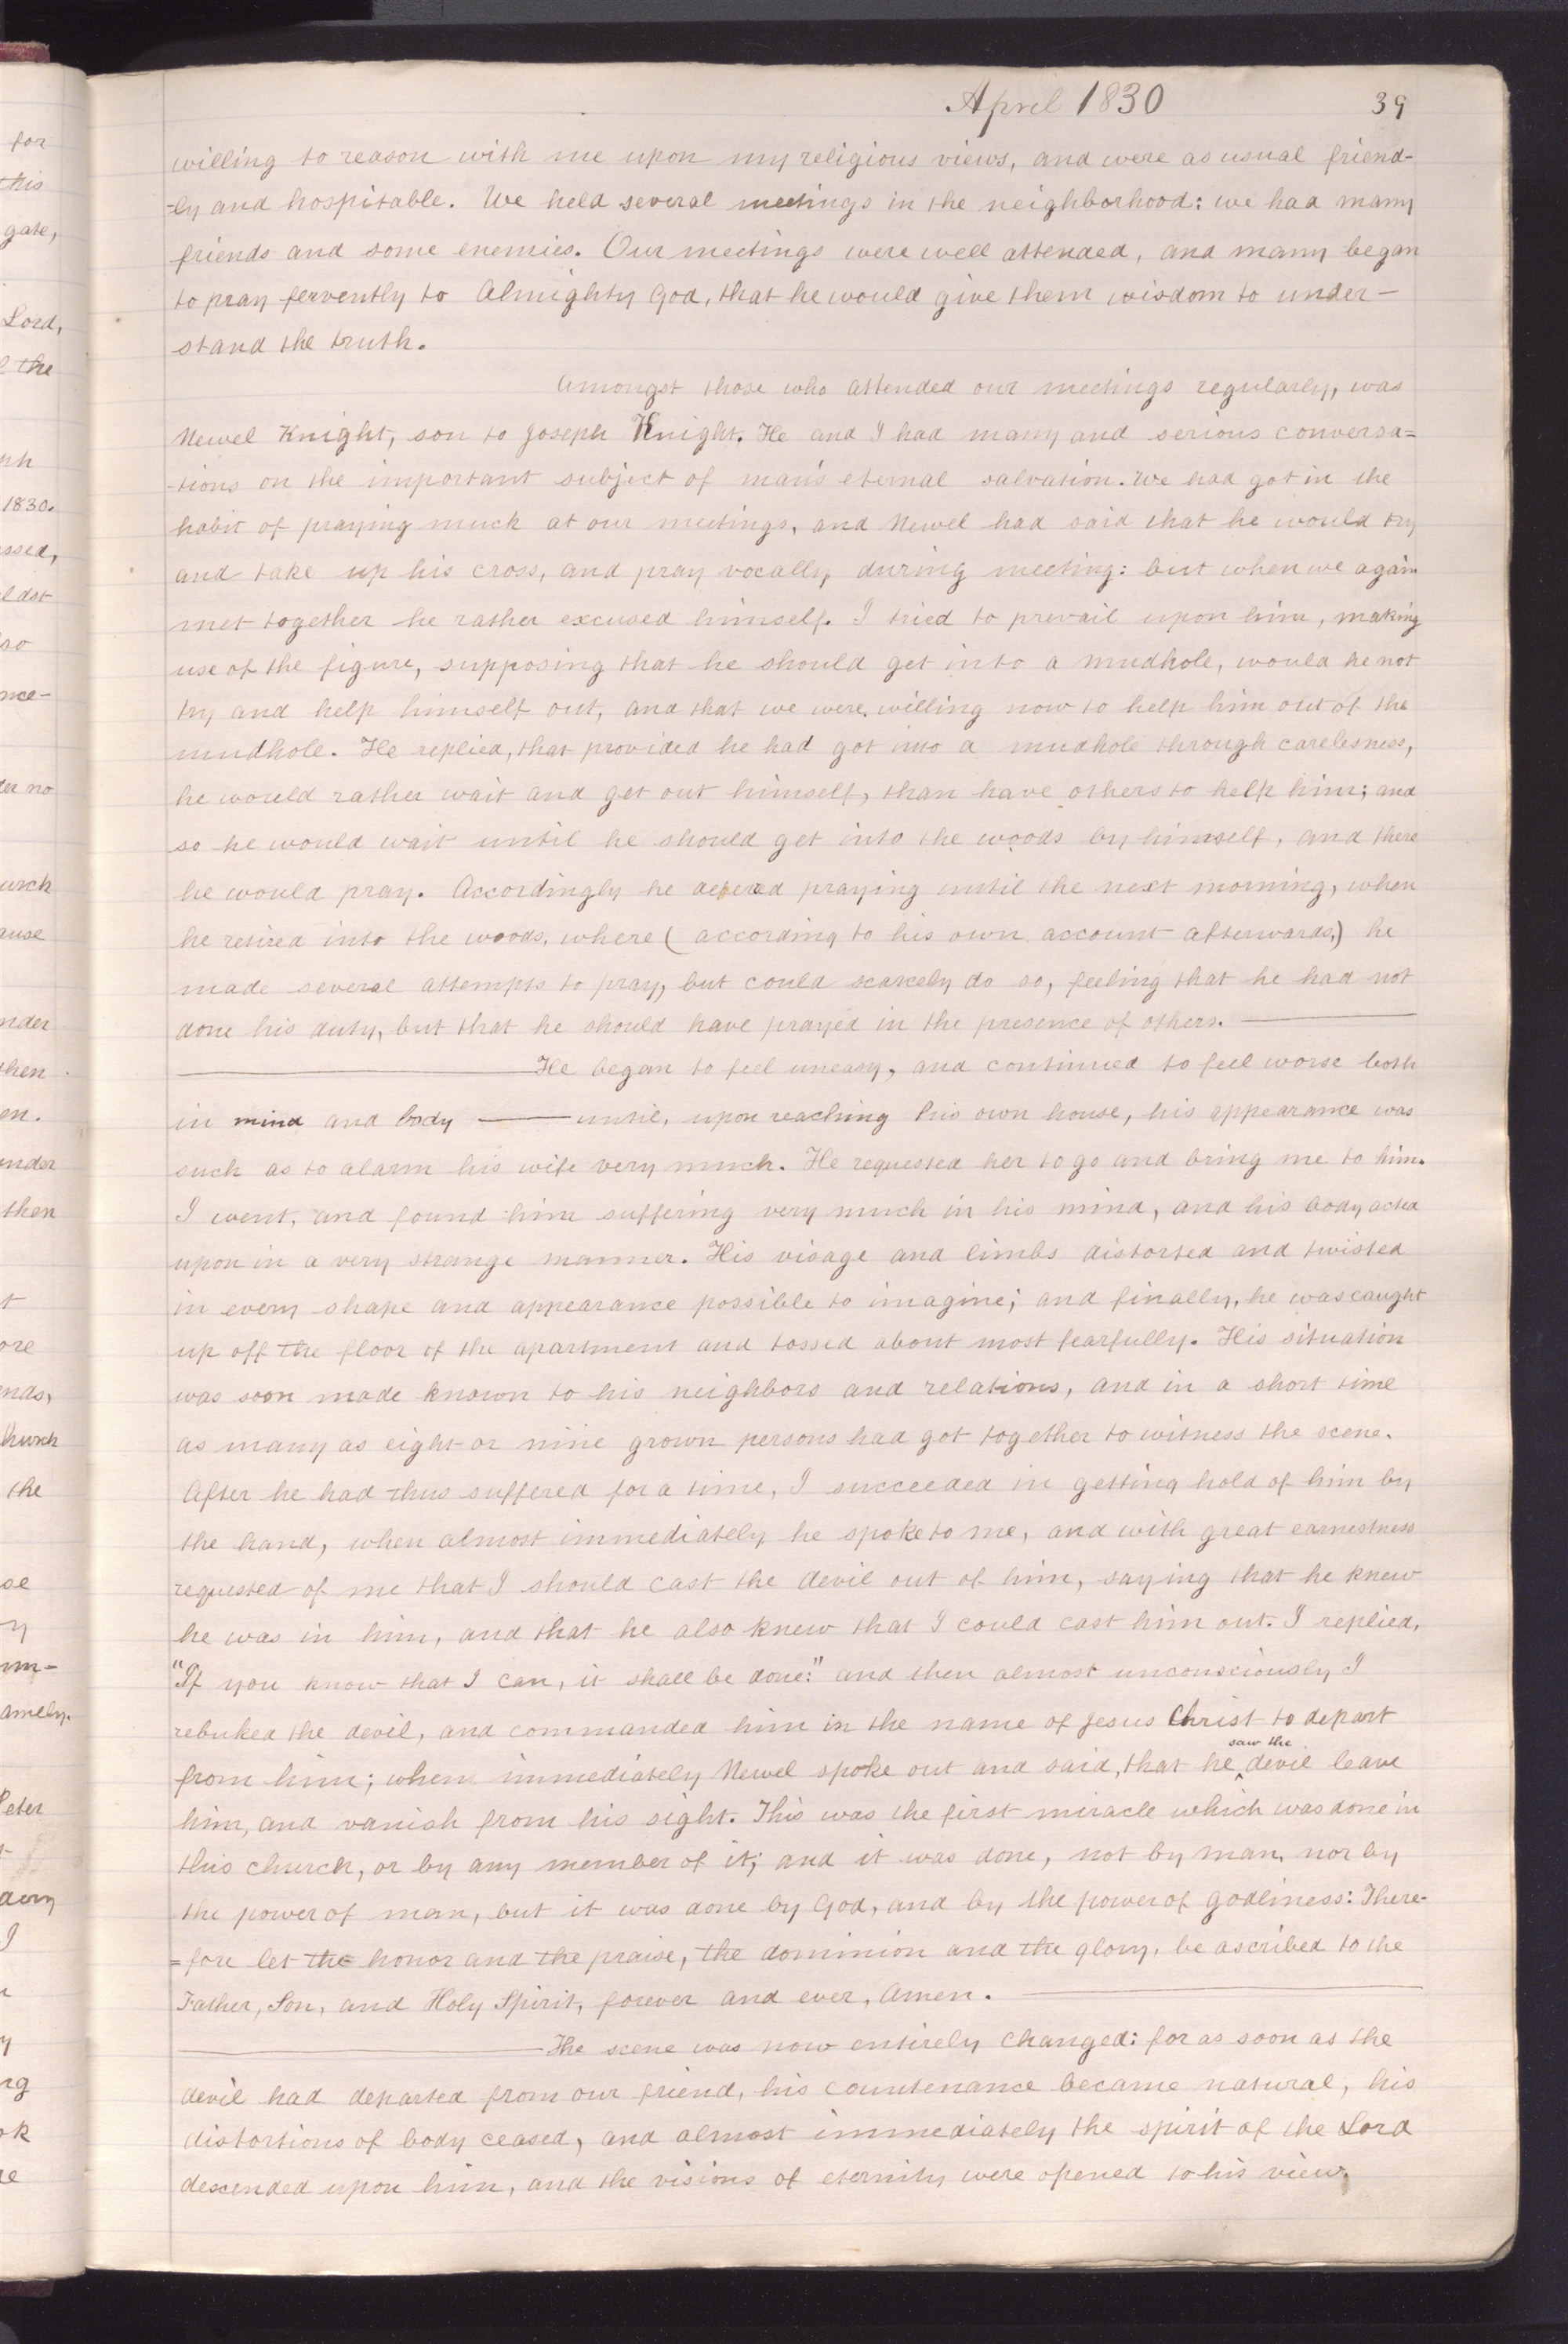 April 1830 39
willing to reason with me upon my religious views, and were as usual friend-
-ly and hospitable. We held several meetings in the neighborhood: we had many
friends and some enemies. Our meetings were well attended, and many began
to pray fervently to Almighty God, that he would give them wisdom to under-
stand the truth.
Amongst those who attended our meetings regularly, was
Newel Knight, son to Joseph Knight. He and I had many and serious conversa=
-tions on the important subject of man's eternal salvation. We had got in the
habit of praying much at our meetings, and Newel had said that he would try
and take up his cross, and pray vocally during meeting: but when we again
met together he rather excused himself. I tried to prevail upon him, making
use of the figure, supposing that he should get into a mudhole, would he not
try and help himself out, and that we were willing now to help him out of the
mudhole. He replied, that provided he had got into a mudhole through carelesness,
he would rather wait and get out himself, than have others to help him; and
so he would wait until he should get into the woods by himself, and there
he would pray. Accordingly he defered praying until the next morning, when
he retired into the woods, where (according to his own account afterwards,) he
made several attempts to pray, but could scarcely do so, feeling that he had not
done his duty, but that he should have prayed in the presence of others. ——
—— He began to feel uneasy, and continued to feel worse both
in mind and body —— until, upon reaching his own house, his appearance was
such as to alarm his wife very much. He requested her to go and bring me to him.
I went, and found him suffering very much in his mind, and his body acted
upon in a very strange manner. His visage and limbs distorted and twisted
in every shape and appearance possible to imagine; and finally, he was caught
up off the floor of the apartment and tossed about most fearfully. His situation
was soon made known to his neighbors and relations, and in a short time
as many as eight or nine grown persons had got together to witness the scene.
After he had thus suffered for a time, I succeeded in getting hold of him by
the hand, when almost immediately he spoke to me, and with great earnestness
requested of me that I should cast the devil out of him, saying that he knew
he was in him, and that he also knew that I could cast him out. I replied,
"If you know that I can, it shall be done:" and then almost unconsciously I
rebuked the devil, and commanded him in the name of Jesus Christ to depart
saw the
from him; when immediately Newel spoke out and said, that he ^ devil leave
him, and vanish from his sight. This was the first miracle which was done in
this church, or by any member of it; and it was done, not by man, nor by
the power of man, but it was done by God, and by the power of godliness: There-
=fore let the honor and the praise, the dominion and the glory, be ascribed to the
Father, Son, and Holy Spirit, forever and ever, Amen. ——
—— The scene was now entirely changed: for as soon as the
devil had departed from our friend, his countenance became natural, his
distortions of body ceased, and almost immediately the spirit of the Lord
descended upon him, and the visions of eternity were opened to his view.